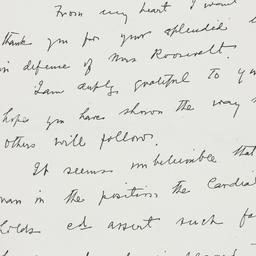 From my heart I want
thank you for your splendid
in defense of Mrs Roosevelt.
I am deeply grateful to you
hope you have shown the way
others will follow.
It seems unbelievable that
man in the position the Cardinal
holds cd assert such fa